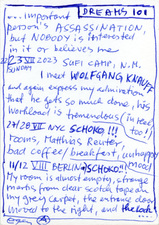 DREAMS 101
... important
person's ASSASSINATION,
but NOBODY is interested
in it or believes me
23 VII 2023 SUFI CAMP, N.M.
SUNDAY
I meet WOLFGANG KNAUFF
and again express my admiration
that he gets so much done, his
workload is tremendous (in teach
too!!)
24/28 VII NYC SCHOKO!!!
rooms, Matthias Reuter,
bad coffee/breakfast, unhappy
mood
11/12 VIII BERLIN SCHOKO!!
My room is almost empty, strange
marks from clear scotch tape on
my grey carpet, the extreme door
moved to the right, and the